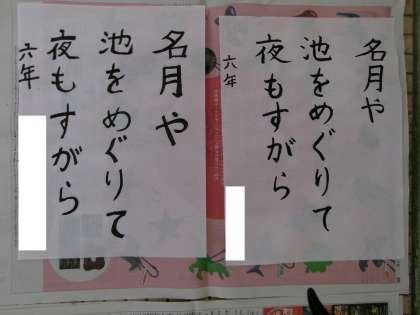 名月や
池をめぐりて
夜もすがら
六年
名月や
池をめぐりて
夜もすがら
六年